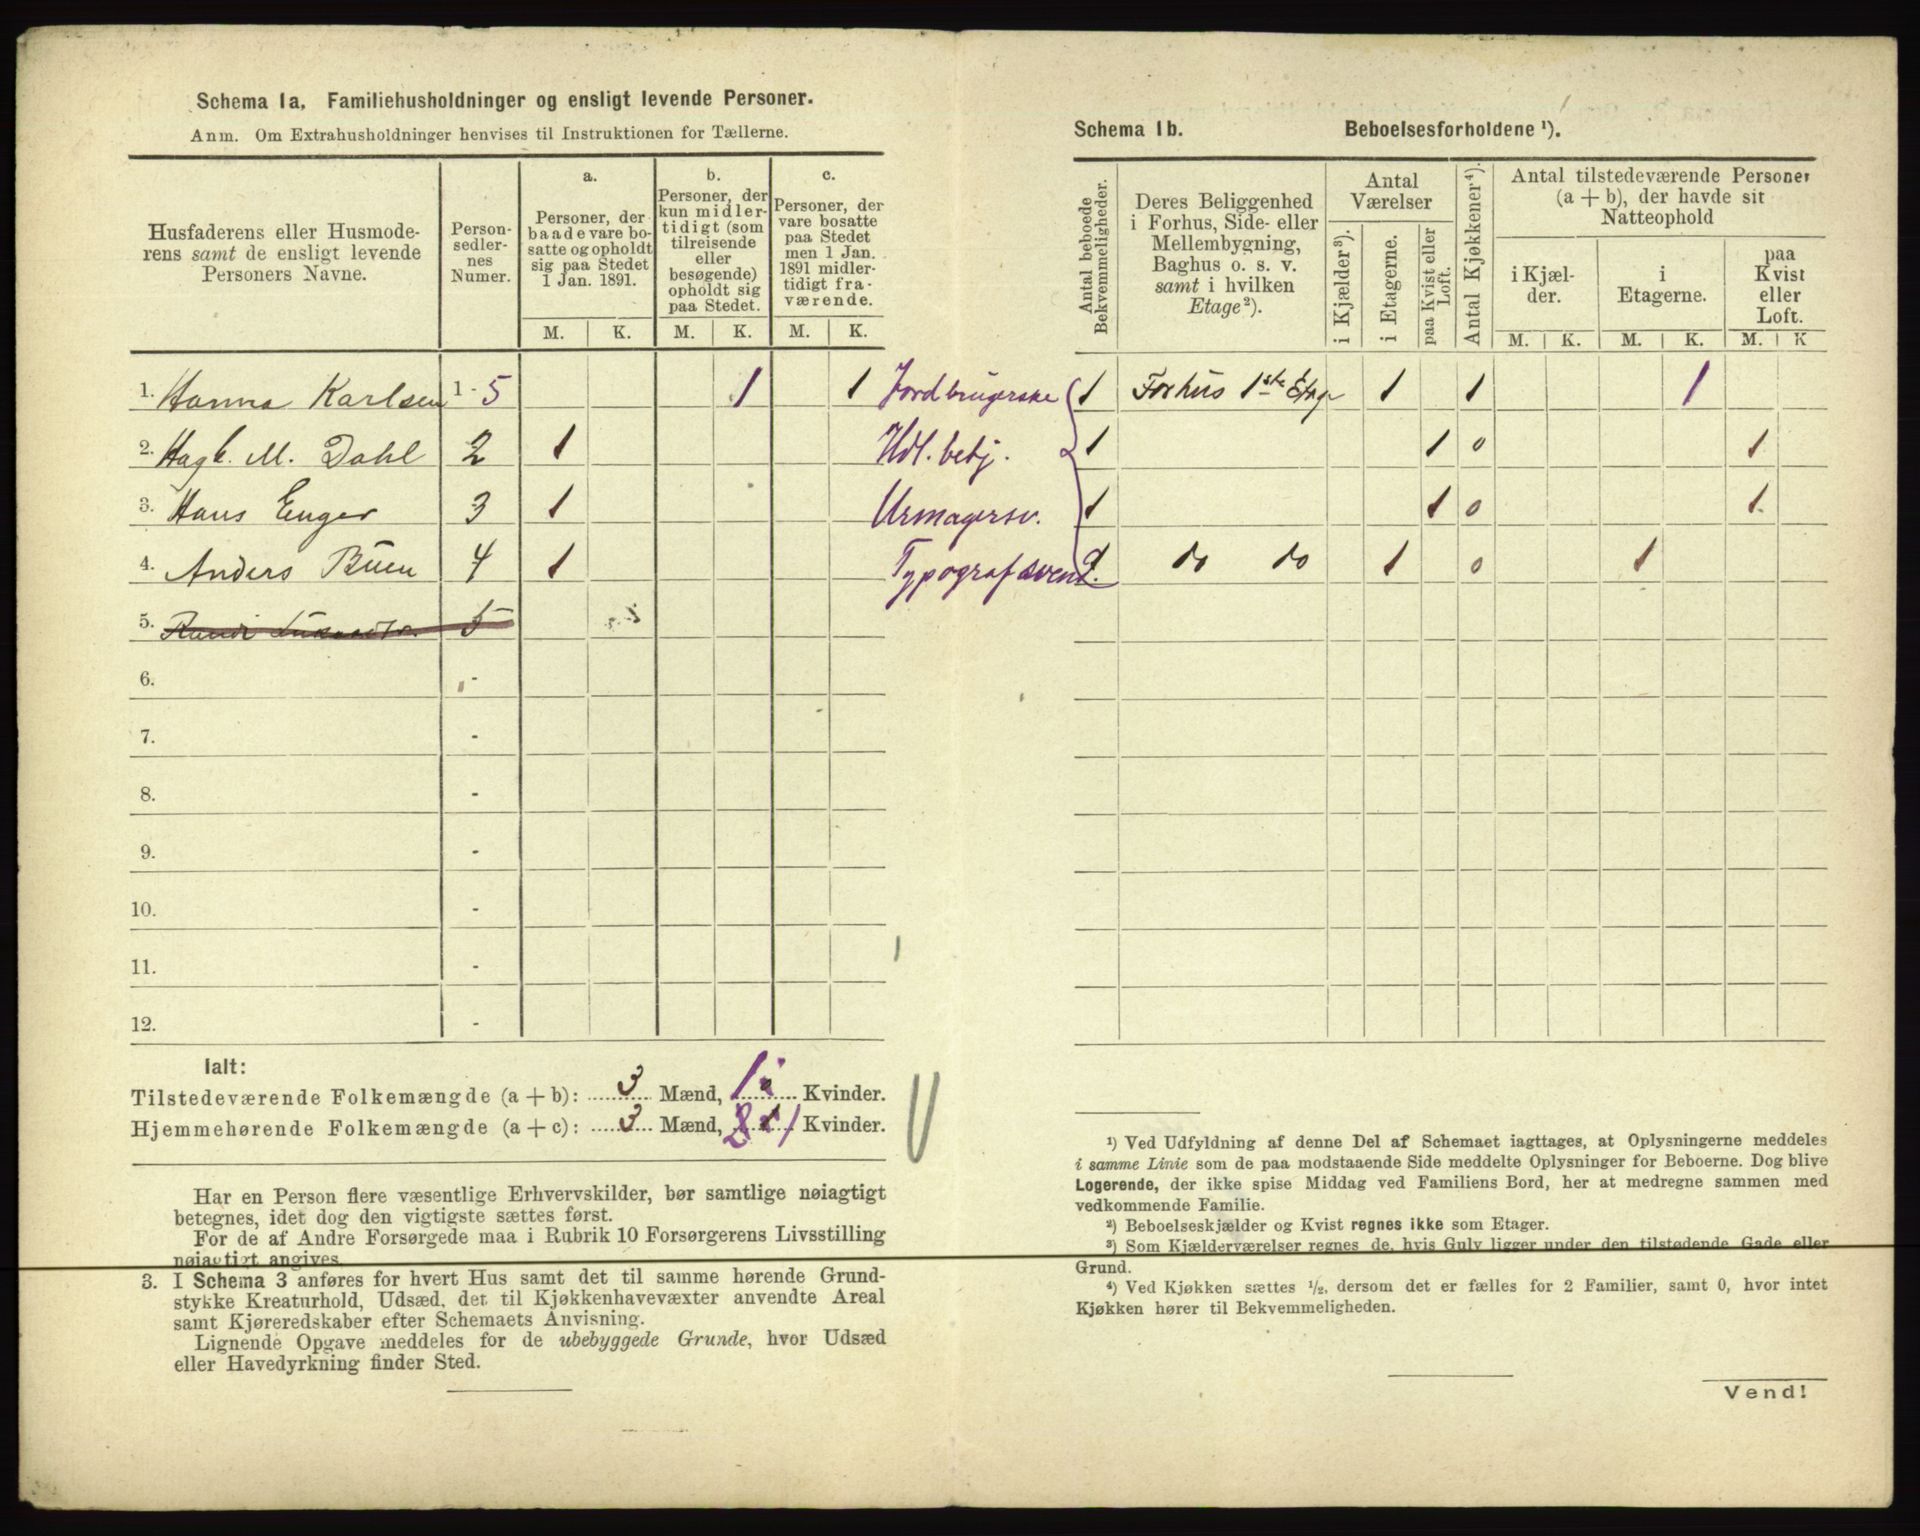 Schema 1a, Familiehusholdninger og ensligt levende Personer.
Anm. Om Extrahusholdninger henvises til Instruktionen for Tællerne.
Husfaderens eller Husmode-
rens samt de ensligt levende
Personers Navne.
Person-
sedler-
nes
Numer.
a.
Personer, der
baade vare bo-
satte og opholdt
sig paa Stedet
1 Jan. 1891.
b.
Personer, der
kun midler-
tidigt (som
tilreisende
eller
besøgende)
opholdt sig
paa Stedet.
c.
Personer, der
vare bosatte
paa Stedet
men 1 Jan.
1891 midler-
tidigt fra-
værende.
M. K. M. K. M. K.
1. Hanna Karlsen 1-5 1 1 Jordbrugerske
2. Hagb. M. Dahl 2 1 Hdl. betj.
3. Hans Enger 3 1 Urmagersv.
4. Anders Buen 4 1 Typografsvend.
5. 5
6. -
7. -
8. -
9. -
10. -
11. -
12. -
Ialt:
Tilstedeværende Folkemængde (a + b): 3 Mænd, 1 Kvinder.
Hjemmehørende Folkemængde (a + c): 3 Mænd, 1 Kvinder.
Har en Person flere væsentlige Erhvervskilder, bør samtlige nøiagtigt
betegnes, idet dog den vigtigste sættes først.
For de af Andre Forsørgede maa i Rubrik 10 Forsørgerens Livsstilling
nøiagtigt angives.
3. I Schema 3 anføres for hvert Hus samt det til samme hørende Grund-
stykke Kreaturhold, Udsæd, det til Kjøkkenhavevæxter anvendte Areal
samt Kjøreredskaber efter Schemaets Anvisning.
Lignende Opgave meddeles for de ubebyggede Grunde, hvor Udsæd
eller Havedyrkning finder Sted.
Schema 1b. Beboelsesforholdene ¹).
Antal beboede
Bekvemmeligheder.
Deres Beliggenhed
i Forhus, Side- eller
Mellembygning,
Baghus o. s. v.
samt i hvilken
Etage²).
Antal
Værelser
i Kjælder³).
i Etagerne.
paa Kvist eller
Loft.
Antal Kjøkkener⁴).
Antal tilstedeværende Personer
(a + b), der havde sit
Natteophold
i Kjæl-
der.
i
Etagerne.
paa
Kvist
eller
Loft.
M. K. M. K. M. K
1 Forhus 1ste Etage 1 1 1
1 1 0 1
1 1 0 1
1 do do 1 0 1
¹) Ved Udfyldning af denne Del af Schemaet iagttages, at Oplysningerne meddeles
i samme Linie som de paa modstaaende Side meddelte Oplysninger for Beboerne. Dog blive
Logerende, der ikke spise Middag ved Familiens Bord, her at medregne sammen med
vedkommende Familie.
²) Beboelseskjælder og Kvist regnes ikke som Etager.
³) Som Kjælderværelser regnes de, hvis Gulv ligger under den tilstødende Gade eller
Grund.
⁴) Ved Kjøkken sættes ½, dersom det er fælles for 2 Familier, samt 0, hvor intet
Kjøkken hører til Bekvemmeligheden.
Vend!